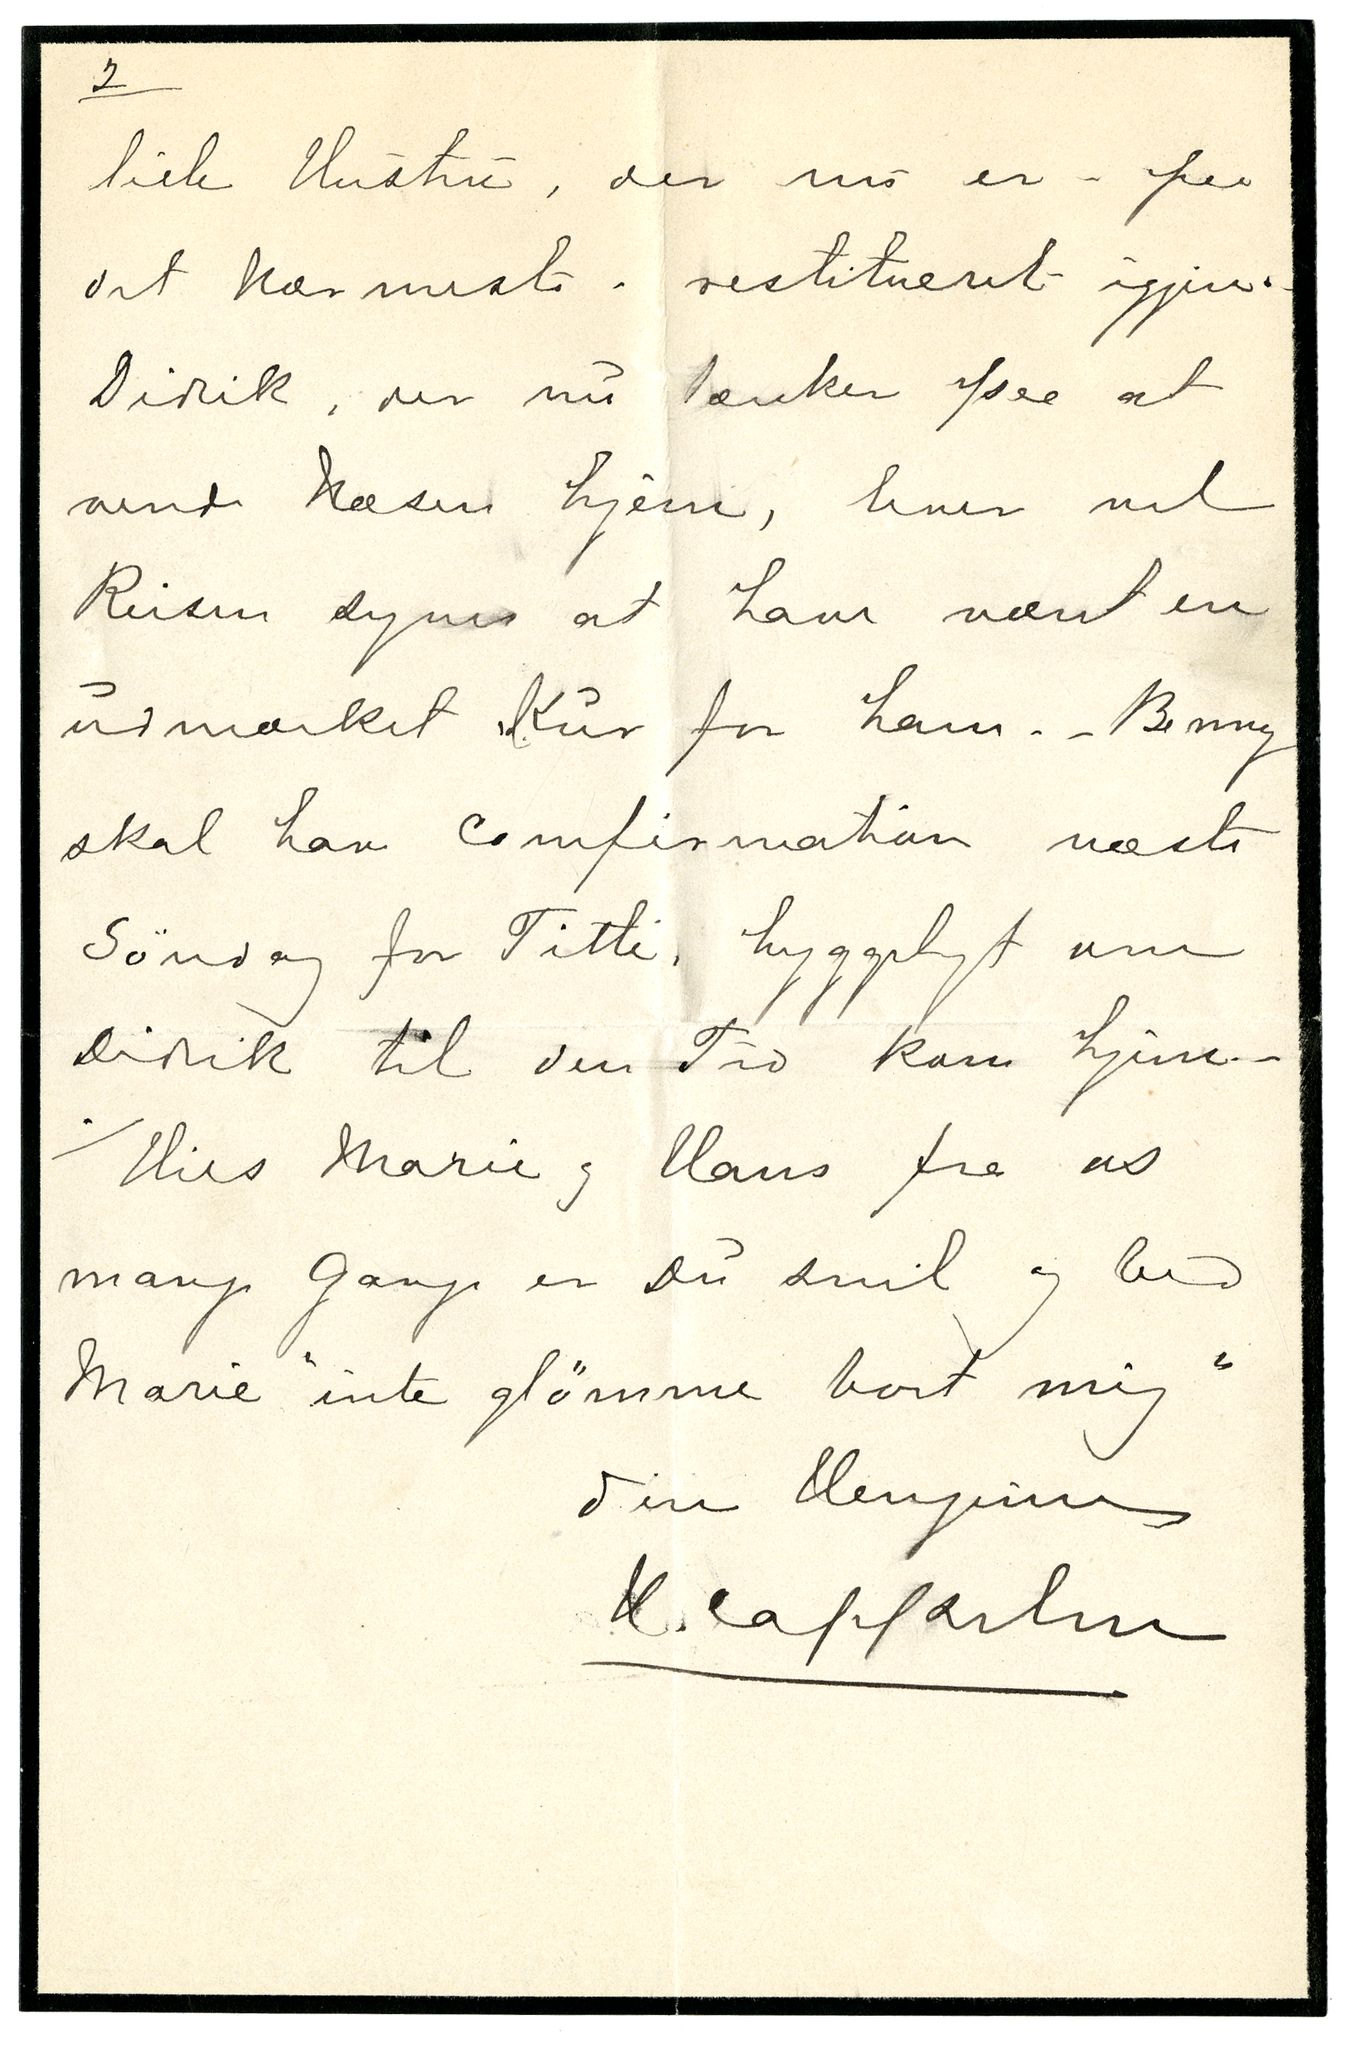 2
lille Hustru, der nu er - paa
det nærmeste - restitueret igjen. -
Didrik, der nu tænker paa at
vende Næsen hjem, lever vel
Reisen synes at have været en
udmærket Kur for ham. - Benny
skal have Comfirmation næste
Söndag for Titti, hyggeligt om
Didrik til den Tid kom hjem. -
Hils Marie og Hans fra os
mange Gange er Du snil og bed
Marie "inte glömme bort mig"
din Hengivne
H. Cappelen